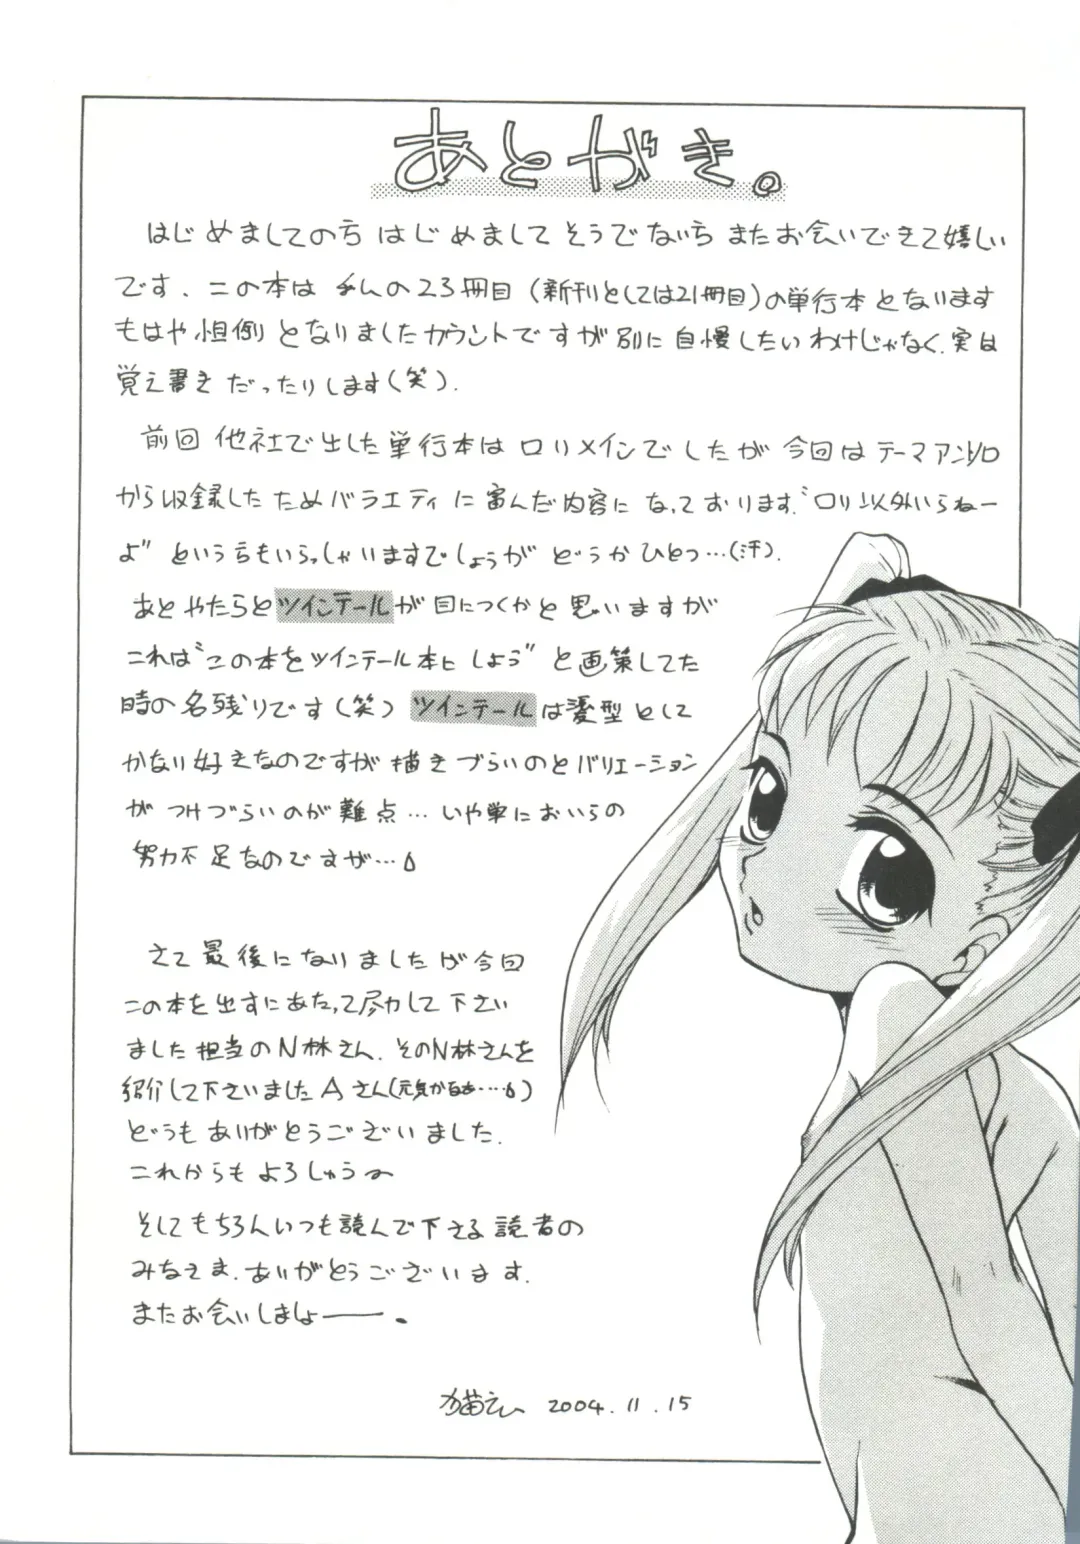 あとがき。
はじめましての方 はじめまして そうでない方 またお会いできて嬉しい
です。この本は 私の23冊目（新刊としては21冊目）の単行本となります
もはや恒例となりましたカウントですが別に自慢したいわけじゃなく、実は
覚え書きだったりします（笑）.
前回 他社で出した単行本は ロリメインでしたが 今回は テーマアンソロ
から収録したため バラエティに富んだ内容になっております.“ロリ以外いらねー
よ” という方もいらっしゃいますでしょうが どうかひとつ…（汗）.
あと やたらとツインテールが目につくかと思いますが
これは“この本をツインテール本にしよう”と画策してた
時の名残りです（笑）ツインテールは髪型として
かなり好きなのですが 描きづらいのとバリエーション
が つけづらいのが難点…いや単においらの
努力不足なのですが…
さて最後になりましたが今回
この本を出すにあたって尽力して下さい
ました担当のN林さん. そのN林さんを
紹介して下さいましたAさん（元気かなあ……）
どうもありがとうございました.
これからもよろしゅう〜
そしてもちろんいつも読んで下さる読者の
みなさま. ありがとうございます.
またお会いしましょ──.
2004.11.15